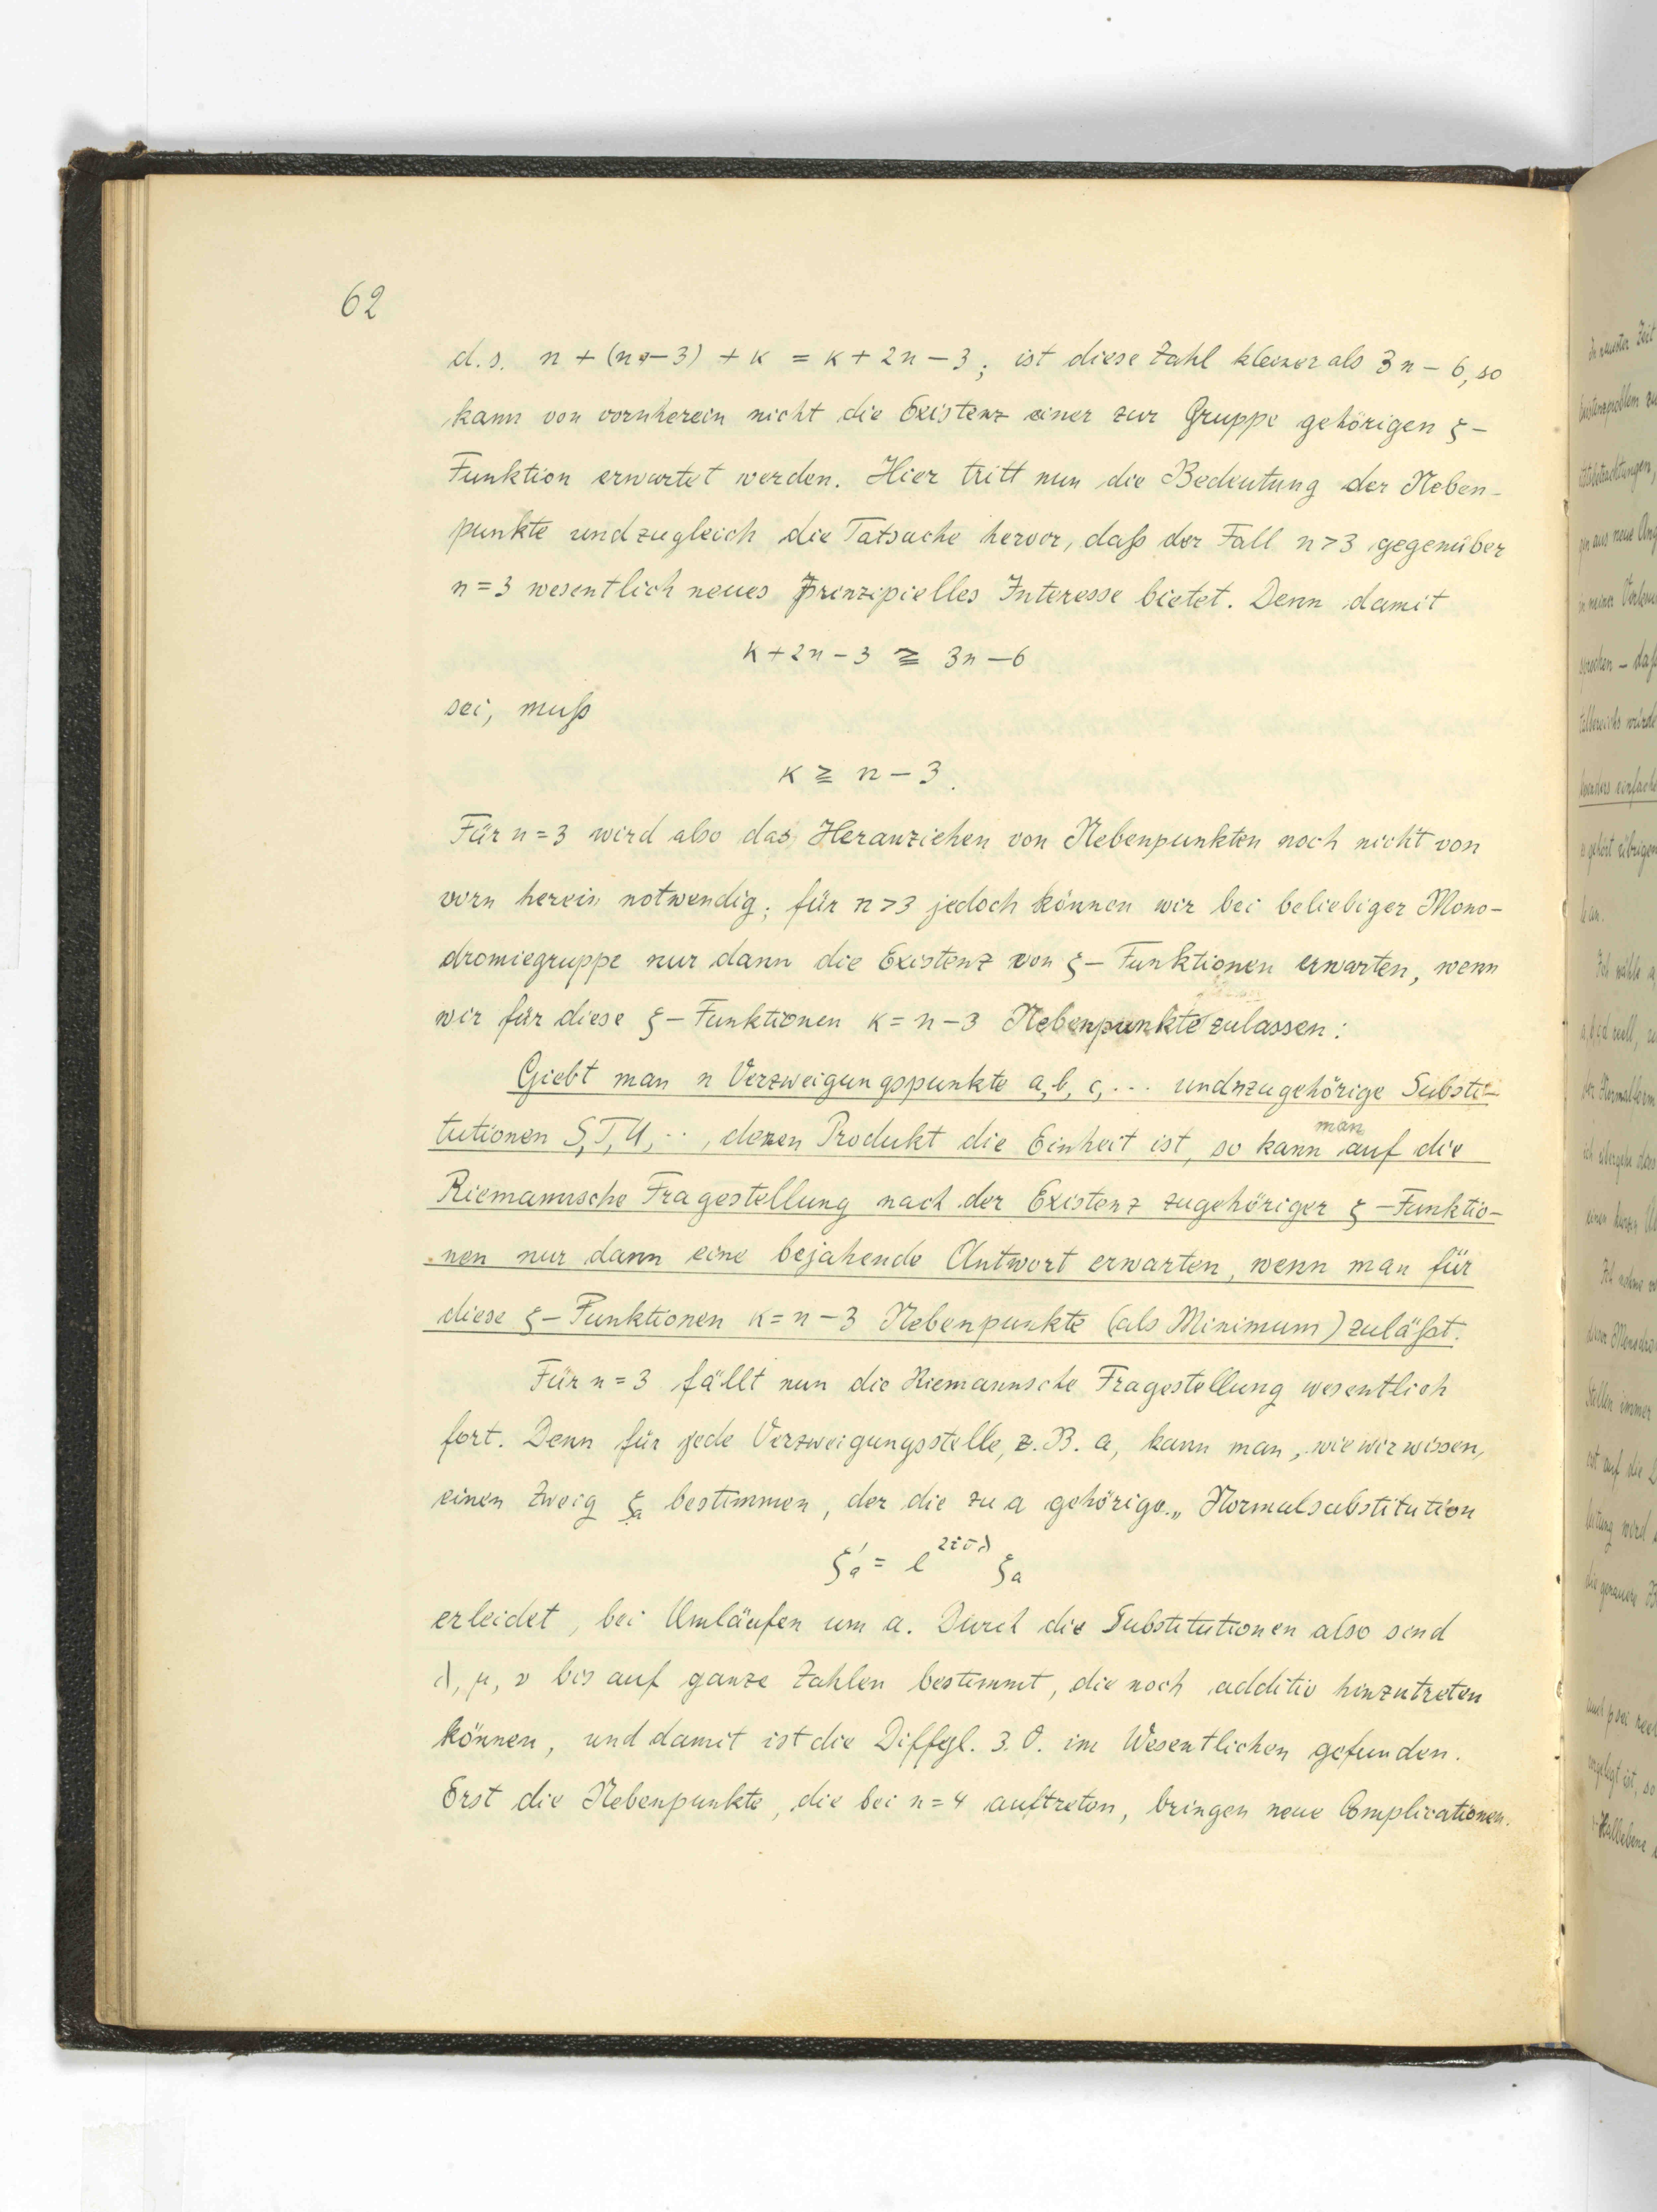 62
d. s. n + (n - 3) + κ = κ + 2n - 3; ist diese Zahl kleiner als 3n - 6, so
kann von vornherein nicht die Existenz einer zur Gruppe gehörigen ξ-
Funktion erwartet werden. Hier tritt nun die Bedeutung der Neben-
punkte und zugleich die Tatsache hervor, daß der Fall n > 3 gegenüber
n = 3 wesentlich neues prinzipielles Interesse bietet. Denn damit
κ + 2n - 3 ≧ 3n - 6
sei, muß
κ ≧ n - 3.
Für n = 3 wird also das Heranziehen von Nebenpunkten noch nicht von
vorn herein notwendig; für n > 3 jedoch können wir bei beliebiger Mono-
dromiegruppe nur dann die Existenz von ξ-Funktionen erwarten, wenn
wir für diese ξ-Funktionen κ = n - 3 Nebenpunkte zulassen:
Giebt man n Verzweigungspunkte a, b, c, ... und n zugehörige Substi-
tutionen S, T, U, .., deren Produkt die Einheit ist, so kann man auf die
Riemannsche Fragestellung nach der Existenz zugehöriger ξ-Funktio-
nen nur dann eine bejahende Antwort erwarten, wenn man für
diese ξ-Funktionen κ = n - 3 Nebenpunkte (als Minimum) zuläßt.
Für n = 3 fällt nun die Riemannsche Fragestellung wesentlich
fort. Denn für jede Verzweigungsstelle, z. B. a, kann man, wie wir wissen,
einen Zweig ξₐ bestimmen, der die zu a gehörige „Normalsubstitution
ξ'ₐ = e^{2iπλ} ξₐ
erleidet, bei Umläufen um a. Durch die Substitutionen also sind
λ, μ, ν bis auf ganze Zahlen bestimmt, die noch additiv hinzutreten
können, und damit ist die Diffgl. 3. O. im Wesentlichen gefunden.
Erst die Nebenpunkte, die bei n = 4 auftreten, bringen neue Complicationen.